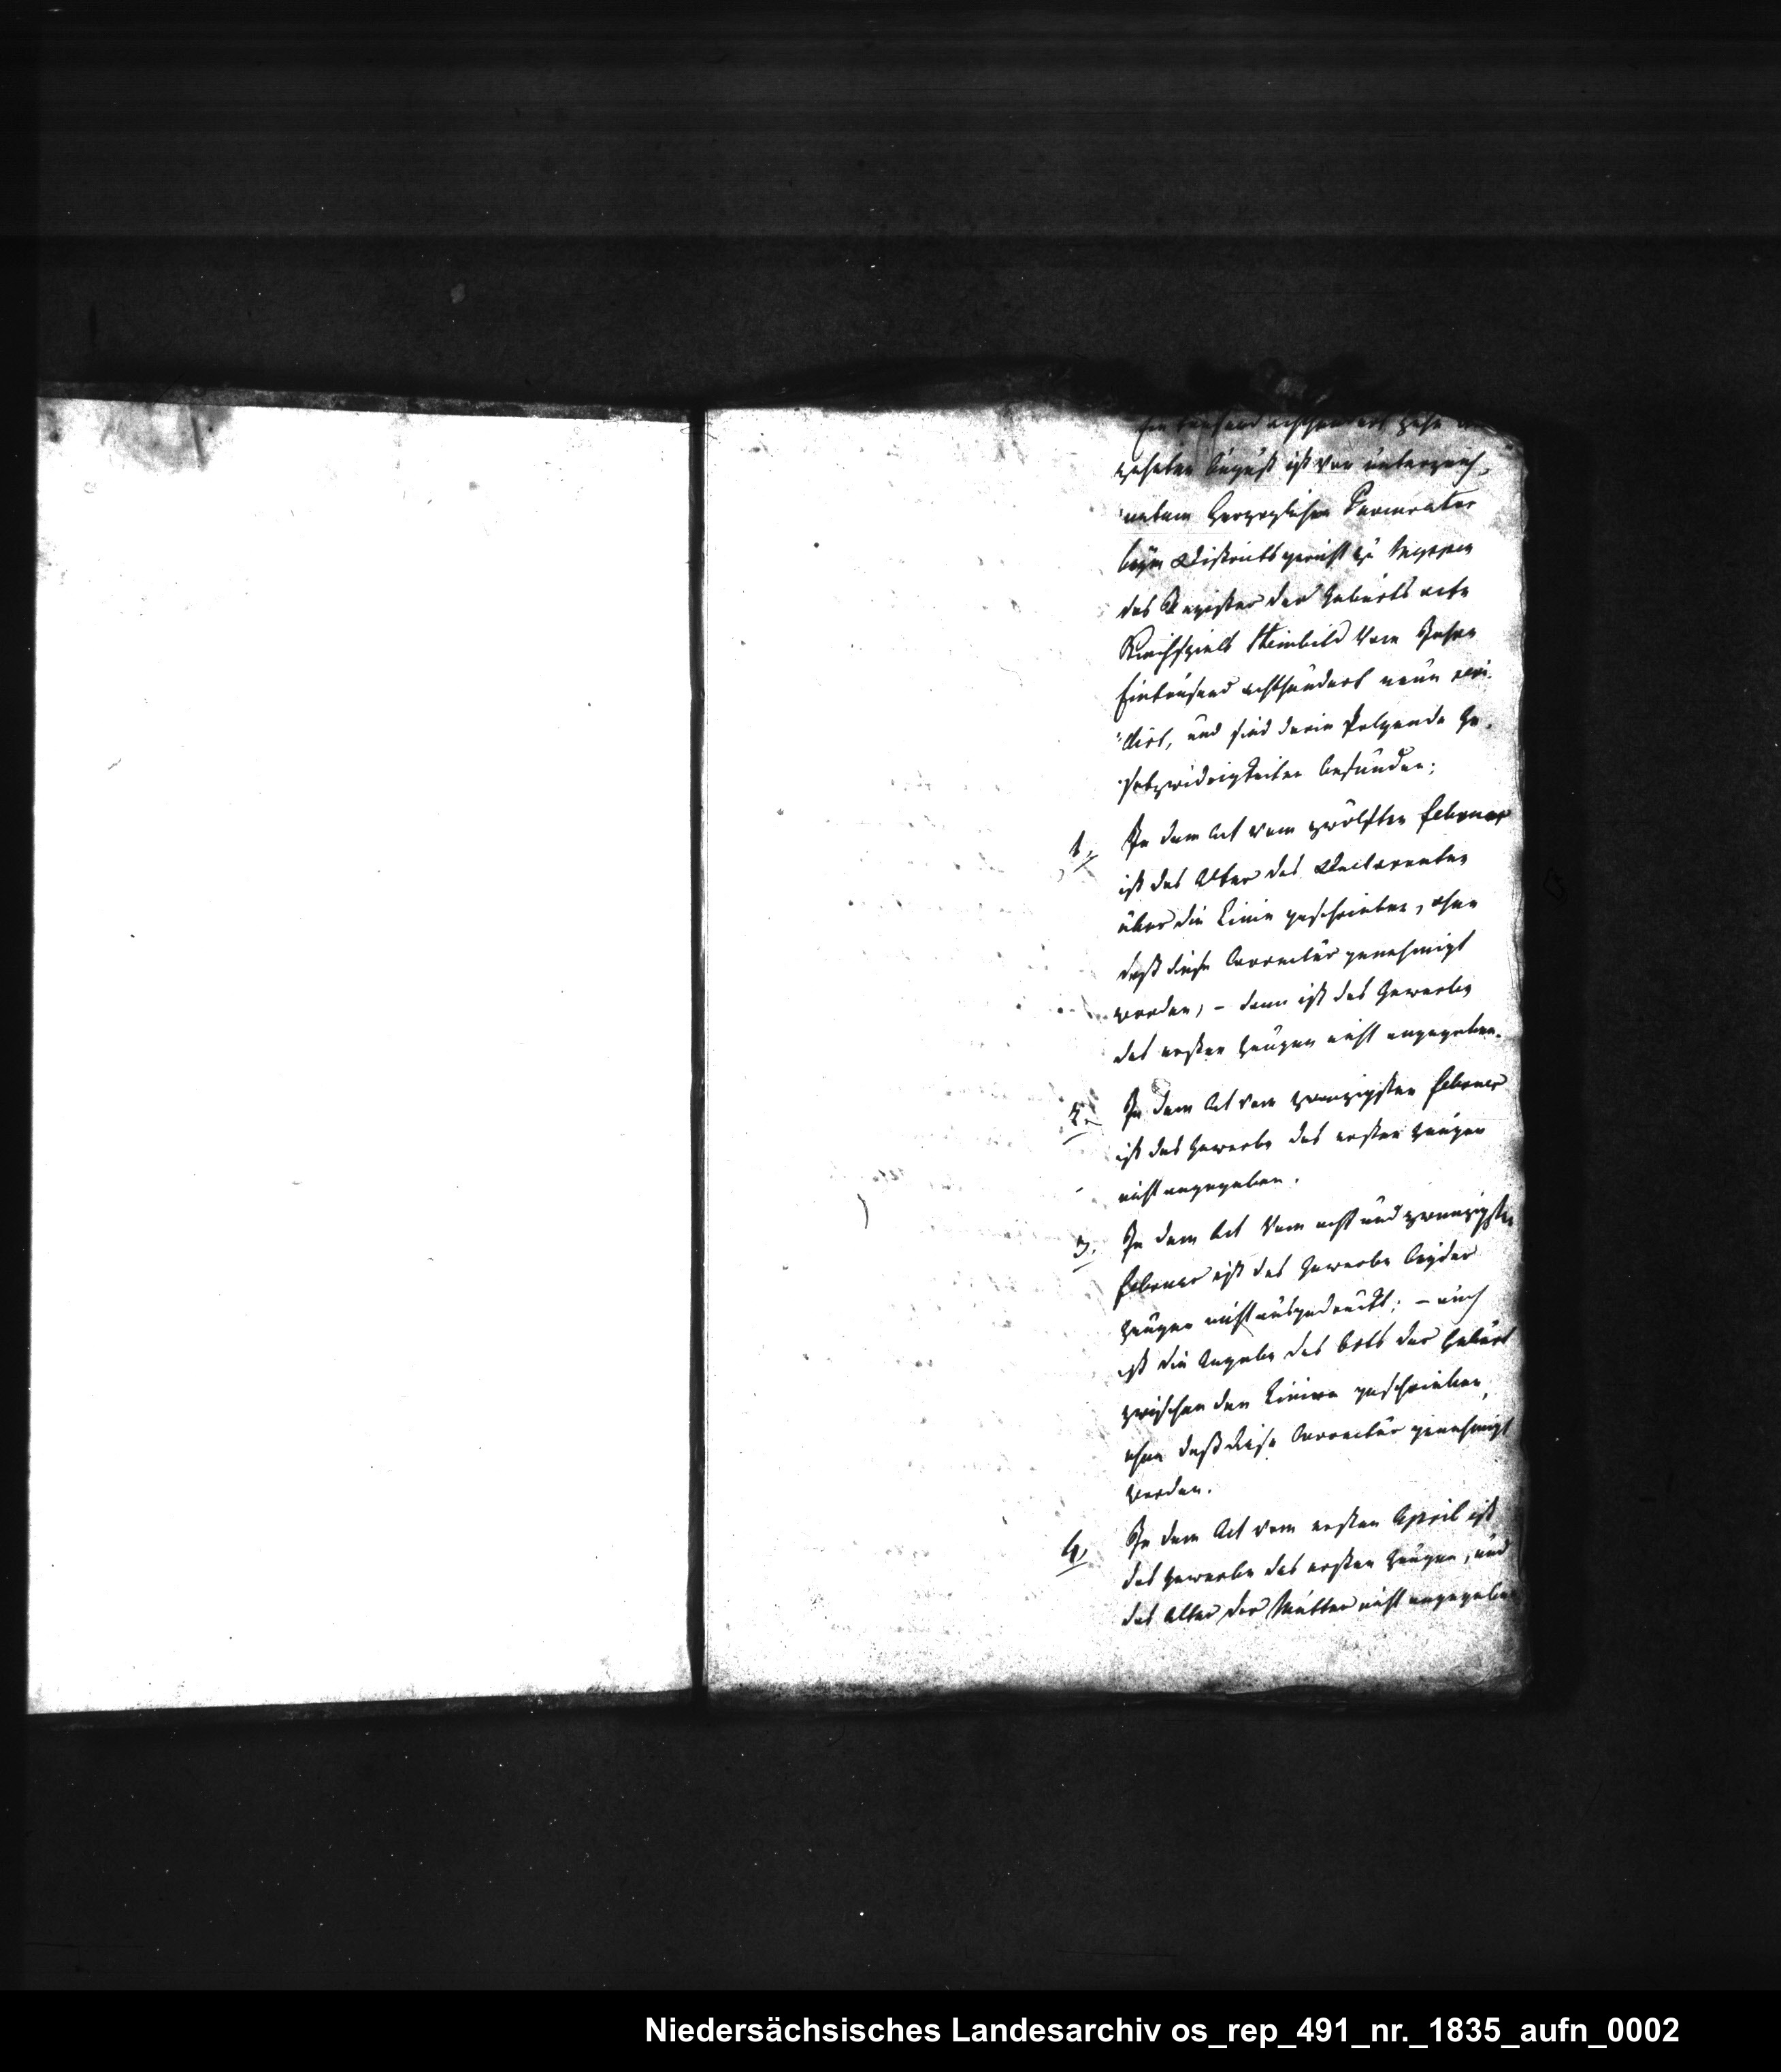 Ein tausend achthundert zehn den
zehnten August ist von unterzeich-
netem Herzoglichen Procurator
beym Districtsgericht zu Meppen
das Register der Geburts acte
Kirchspiels Steinbild vom Jahre
Eintausend achthundert neun revi-
dirt, und sind darin folgende Ge-
setzwidrigkeiten befunden;
1, In dem Act vom zwölften Februar
ist das Alter des Declaranten
über die Linie geschrieben, ohne
daß diese Correctur genehmigt
worden, – dann ist das Gewerbe
des ersten Zeugen nicht angegeben.
2, In dem Act vom zwanzigsten Februar
ist das Gewerbe des ersten Zeugen
nicht angegeben.
3, In dem Act vom acht und zwanzigsten
Februar ist das Gewerbe beyder
Zeugen nicht ausgedruckt; – auch
ist die Angabe des Orts der Geburt
zwischen den Linien geschrieben,
ohne daß diese Correctur genehmigt
worden.
4, In dem Act vom ersten April ist
das Gewerbe des ersten Zeugen, und
das Alter der Mutter nicht angegeben
Niedersächsisches Landesarchiv os_rep_491_nr._1835_aufn_0002